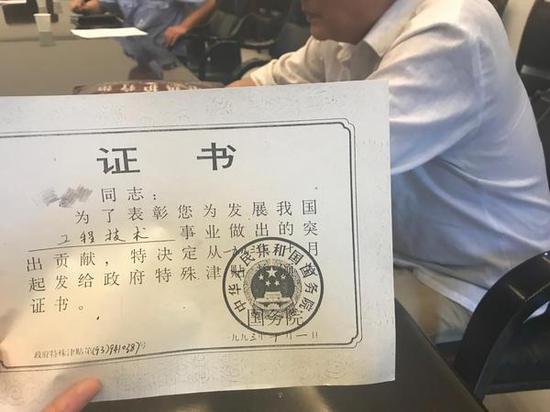 证书
同志：
为了表彰您为发展我国
工程技术 事业做出的突
出贡献，特决定从 月
起发给政府特殊津
证书。
中华人民共和国国务院
国务院
一九九三年十月一日
政府特殊津贴第(93)9410587号